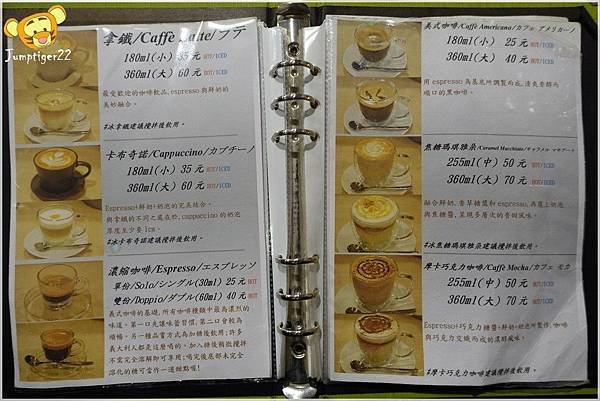 Jumptiger22
拿鐵/Caffè Latte/ラテ
180ml(小) 35 元 HOT/ICED
360ml(大) 60 元 HOT/ICED
最受歡迎的咖啡飲品,espresso與鮮奶的
美妙融合。
♯冰拿鐵建議攪拌後飲用。
卡布奇諾/Cappuccino/カプチーノ
180ml(小) 35元 HOT/ICED
360ml(大) 60元 HOT/ICED
Espresso+鮮奶+奶泡的完美結合。
與拿鐵的不同之處在於,cappuccino的奶泡
厚度至少要1cm。
♯冰卡布奇諾建議攪拌後飲用。
濃縮咖啡/Espresso/エスプレッソ
單份/Solo/シングル(30ml) 25 元 HOT
雙份/Doppio/ダブル(60ml) 40 元 HOT
義式咖啡的基礎,所有咖啡種類中最為濃烈的
味道。第一口先讓味蕾習慣,第二口會較為
順暢。另一種品嘗方式為加糖後飲用;許多
義大利人都是這麼喝的。加入糖後稍微攪拌
不需完全溶解即可享用;喝完後底部未完全
溶化的糖可當作一道甜點喔!
美式咖啡/Caffè Americano/カフェ アメリカーノ
180ml(小) 25 元 HOT/ICED
360ml(大) 40 元 HOT/ICED
用 espresso 為基底所調製而成,清爽香醇而
順口的黑咖啡。
焦糖瑪琪雅朵/Caramel Macchiato/キャラメル マキアート
255ml(中) 50 元 HOT/ICED
360ml(大) 70 元 HOT/ICED
融合鮮奶,香草糖漿和espresso,再覆上奶泡
與焦糖醬,呈現多層次的香甜風味。
♯冰焦糖瑪琪雅朵建議攪拌後飲用。
摩卡巧克力咖啡/Caffè Mocha/カフェ モカ
255ml(中) 50元 HOT/ICED
360ml(大) 70元 HOT/ICED
Espresso+巧克力糖醬+鮮奶+奶泡所製作,咖啡
與巧克力交織而成的濃郁風味。
♯摩卡巧克力咖啡建議攪拌後飲用。